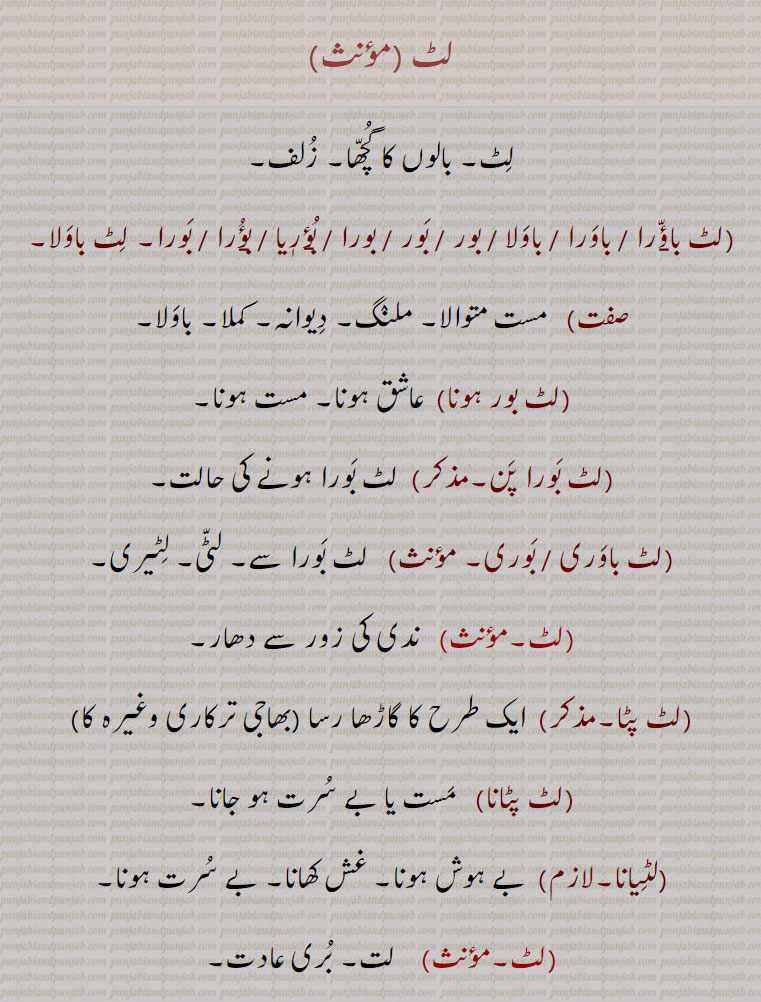 لٹ (مؤنث)
لِٹ۔ بالوں کا گُچھّا۔ زُلف۔
(لٹ باؤّرا / باوَرا / باوَلا / بور / بَور / بورا / بُؤرِیا / بؤُرا / بَورا۔ لِٹ باوَلا۔
صفت) مست متوالا۔ ملنگ۔ دِیوانہ۔ کملا۔ باوَلا۔
(لٹ بور ہونا) عاشق ہونا۔ مست ہونا۔
(لٹ بَورا پَن۔مذکر) لٹ بَورا ہونے کی حالت۔
(لٹ باوَری / بَوری۔ مؤنث) لٹ بَورا سے۔ لٹّی۔ لِٹیری۔
(لٹ۔مؤنث) ندی کی زور سے دھار۔
(لٹ پٹا۔مذکر) ایک طرح کا گاڑھا رسا (بھاجی ترکاری وغیرہ کا)
(لٹ پٹانا) مَست یا بے سُرت ہو جانا۔
(لٹِیانا۔لازم) بے ہوش ہونا۔ غش کھانا۔ بے سُرت ہونا۔
(لٹ۔مؤنث) لت۔ بُری عادت۔